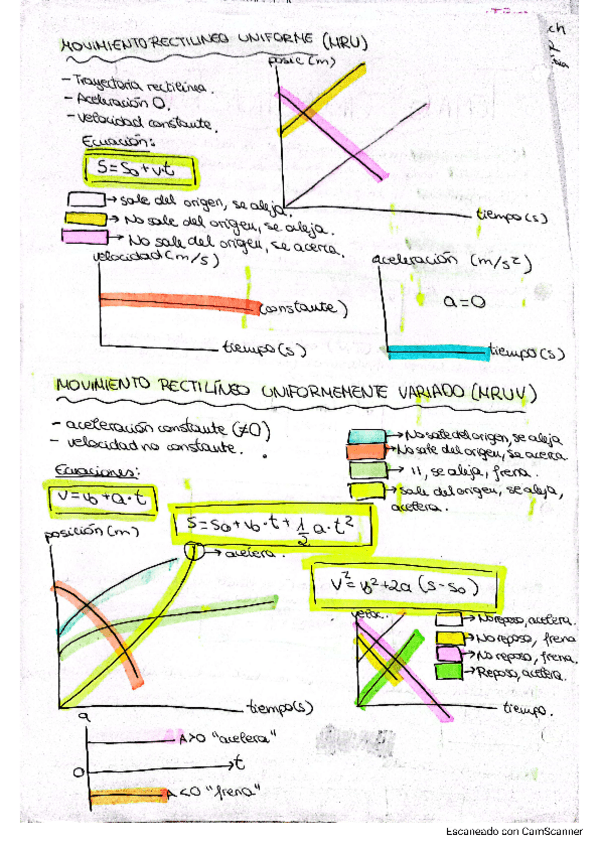 ch
MOVIMIENTO RECTILINEO UNIFORME (MRU)
posic (m)
- Trayectoria rectilínea.
- Aceleración 0.
- velocidad constante.
Ecuación:
S = So + v·t
→ sale del origen, se aleja.
→ No sale del origen, se aleja.
→ No sale del origen, se acerca.
tiempo (s)
velocidad (m/s)
(constante)
tiempo (s)
aceleración (m/s²)
a=0
tiempo (s)
MOVIMIENTO RECTILÍNEO UNIFORMEMENTE VARIADO (MRUV)
- aceleración constante (≠0)
- velocidad no constante.
→ No sale del origen, se aleja
→ No sale del origen, se acerca
→ 11, se aleja, frena.
→ sale del origen, se aleja,
acelera.
Ecuaciones:
V = vo + a·t
S = So + vo·t + 1/2 a·t²
V² = vo² + 2a (s - so)
posición (m)
→ acelera.
tiempo (s)
veloc.
→ No reposo, acelera.
→ No reposo, frena
→ No reposo, frena.
→ Reposo, acelera.
tiempo.
a
A>0 "acelera"
0
t
A<0 "frena"
Escaneado con CamScanner